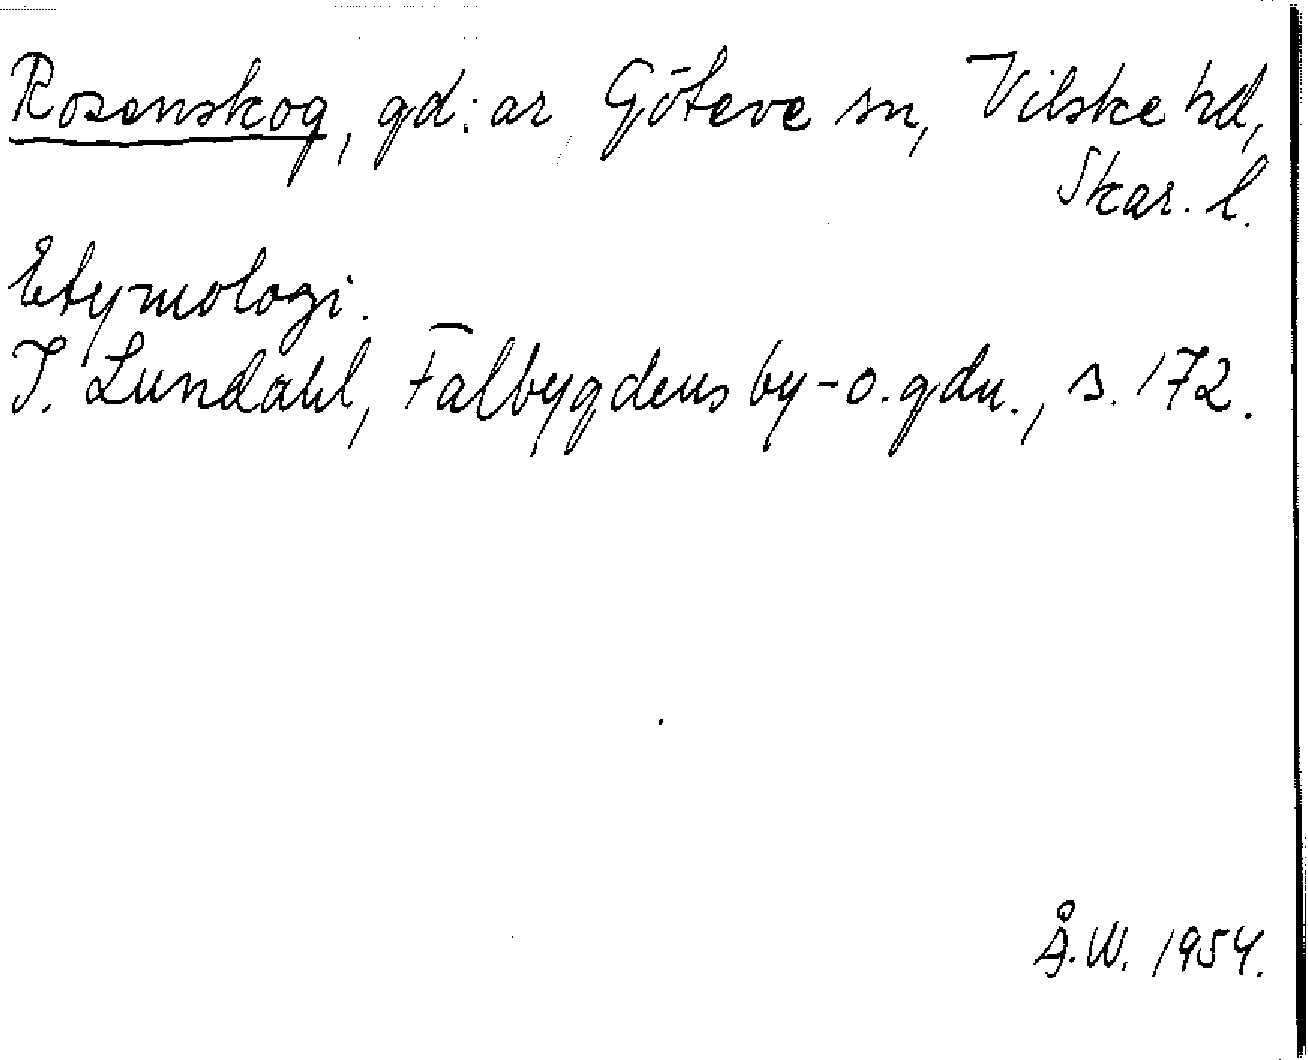 Rosenskog, gd:ar, Göteve sn, Vilske hd,
Skar. l.
Etymologi.
I. Lundahl, Falbygdens by- o. gdn., s. 172.
Å.W. 1954.